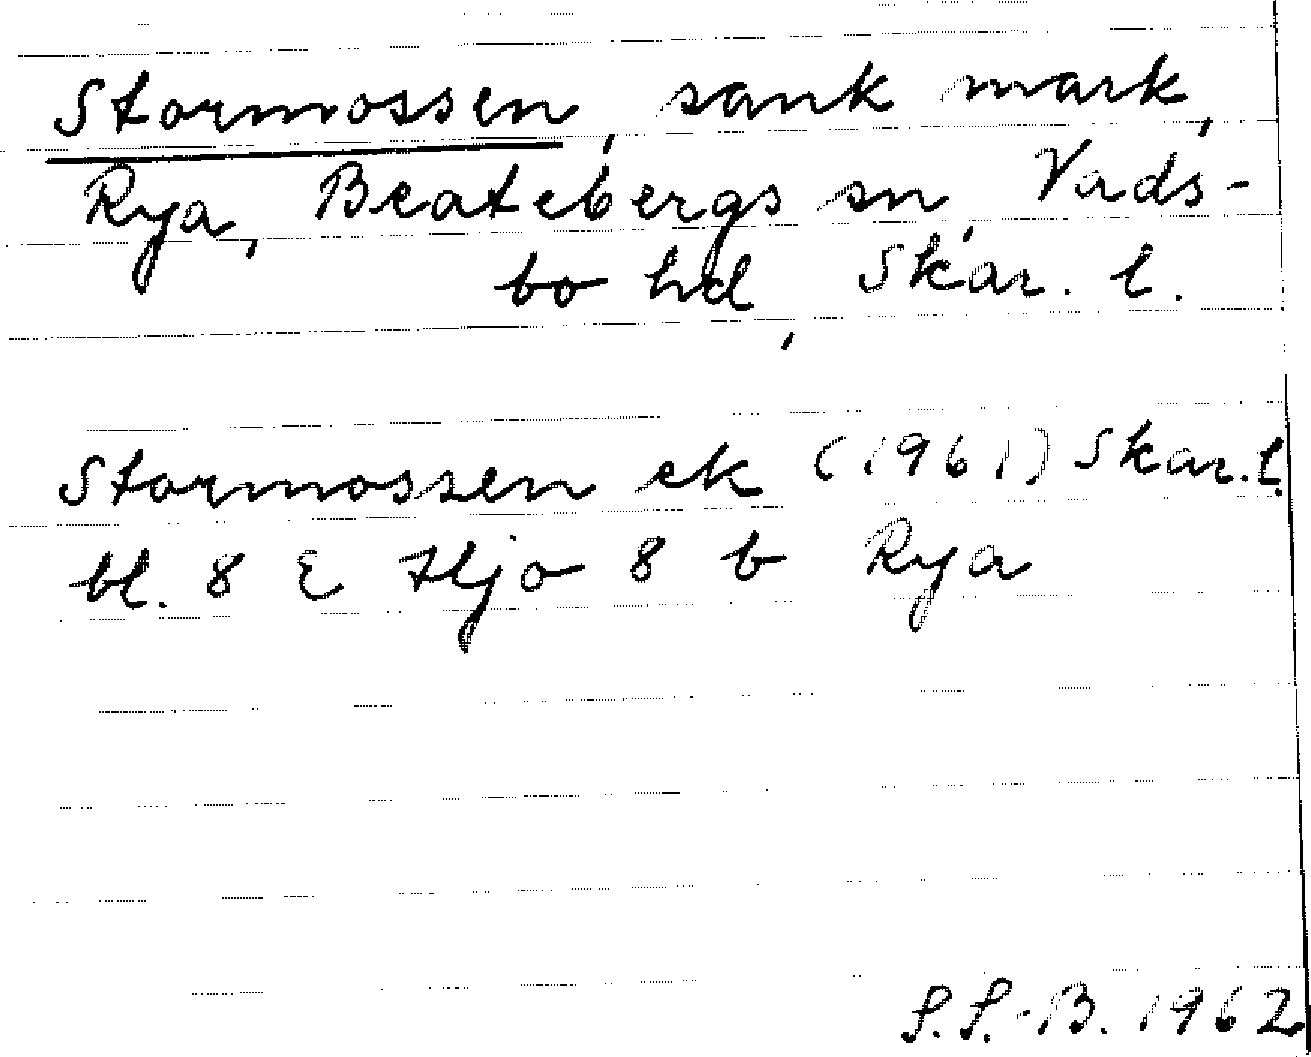 Stormossen, sank mark,
Rya, Beatebergs sn, Vads-
bo hd, Skar. l.
Stormossen ek (1961) Skar. l.
bl. 8 E Hjo 8 b Rya
S.S.-B. 1962